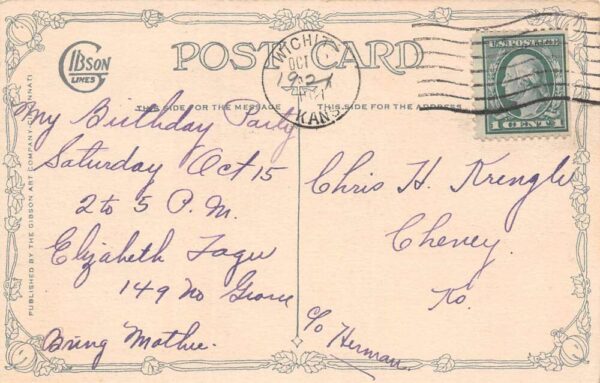 GIBSON
LINES
POST CARD
WICHITA
OCT
1921
KANS
U.S. POSTAGE
1 CENT 1
THIS SIDE FOR THE MESSAGE
THIS SIDE FOR THE ADDRESS
PUBLISHED BY THE GIBSON ART COMPANY, CINCINNATI
My Birthday Party
Saturday Oct 15
2 to 5 P.M.
Elizabeth
149 No Grove
Bring Mother.
Chris H. Krengle
Cheney.
Ks.
c/o Herman.